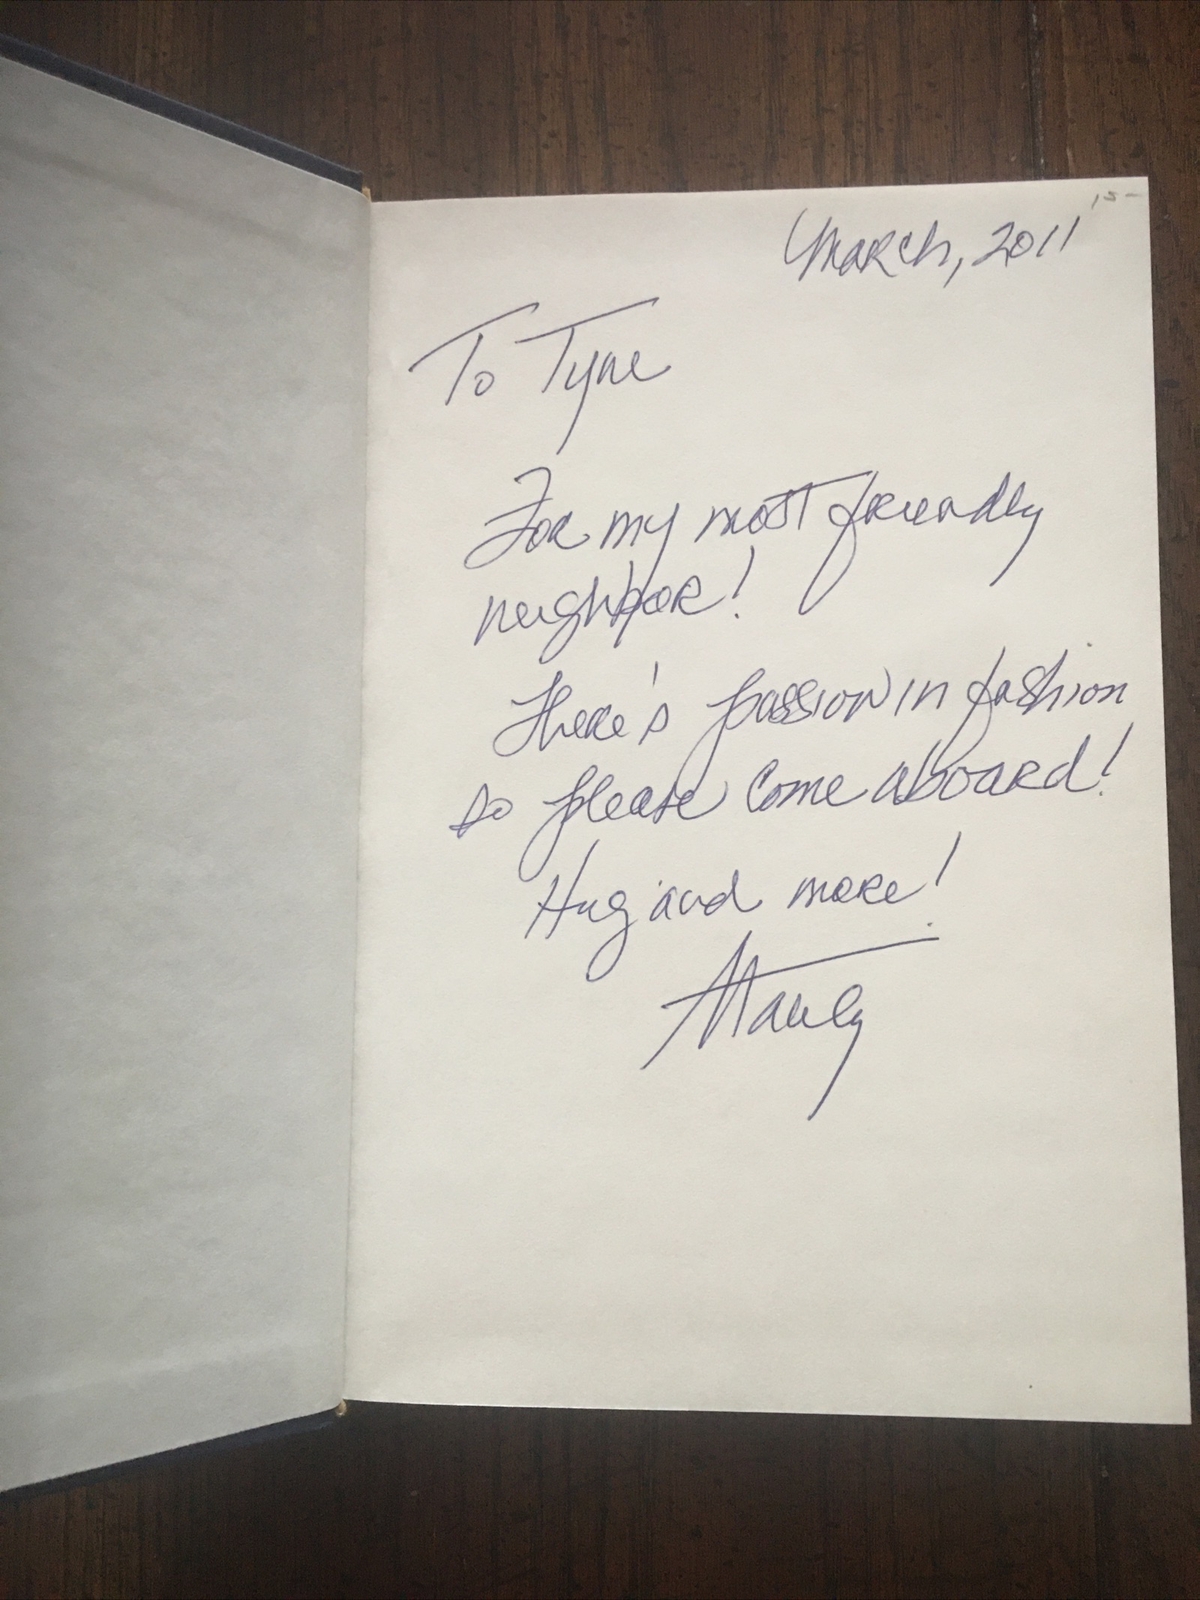 15-
March, 2011
To Tyne
For my most friendly
neighbor!
There's passion in fashion
so please come aboard!
Hug and more!